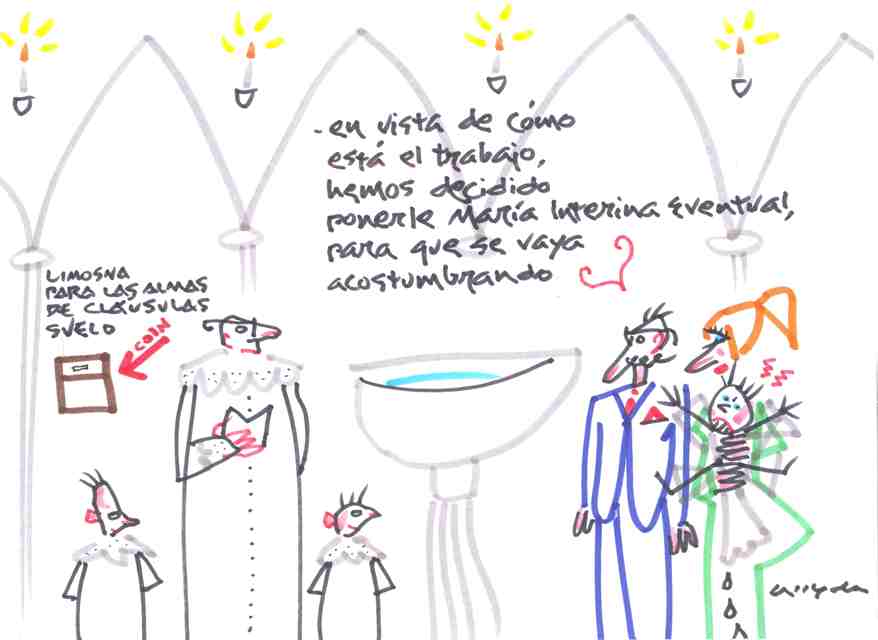 -en vista de cómo
está el trabajo,
hemos decidido
ponerle María Interina Eventual,
para que se vaya
acostumbrando
LIMOSNA
PARA LAS ALMAS
DE CLÁUSULAS
SUELO
COIN